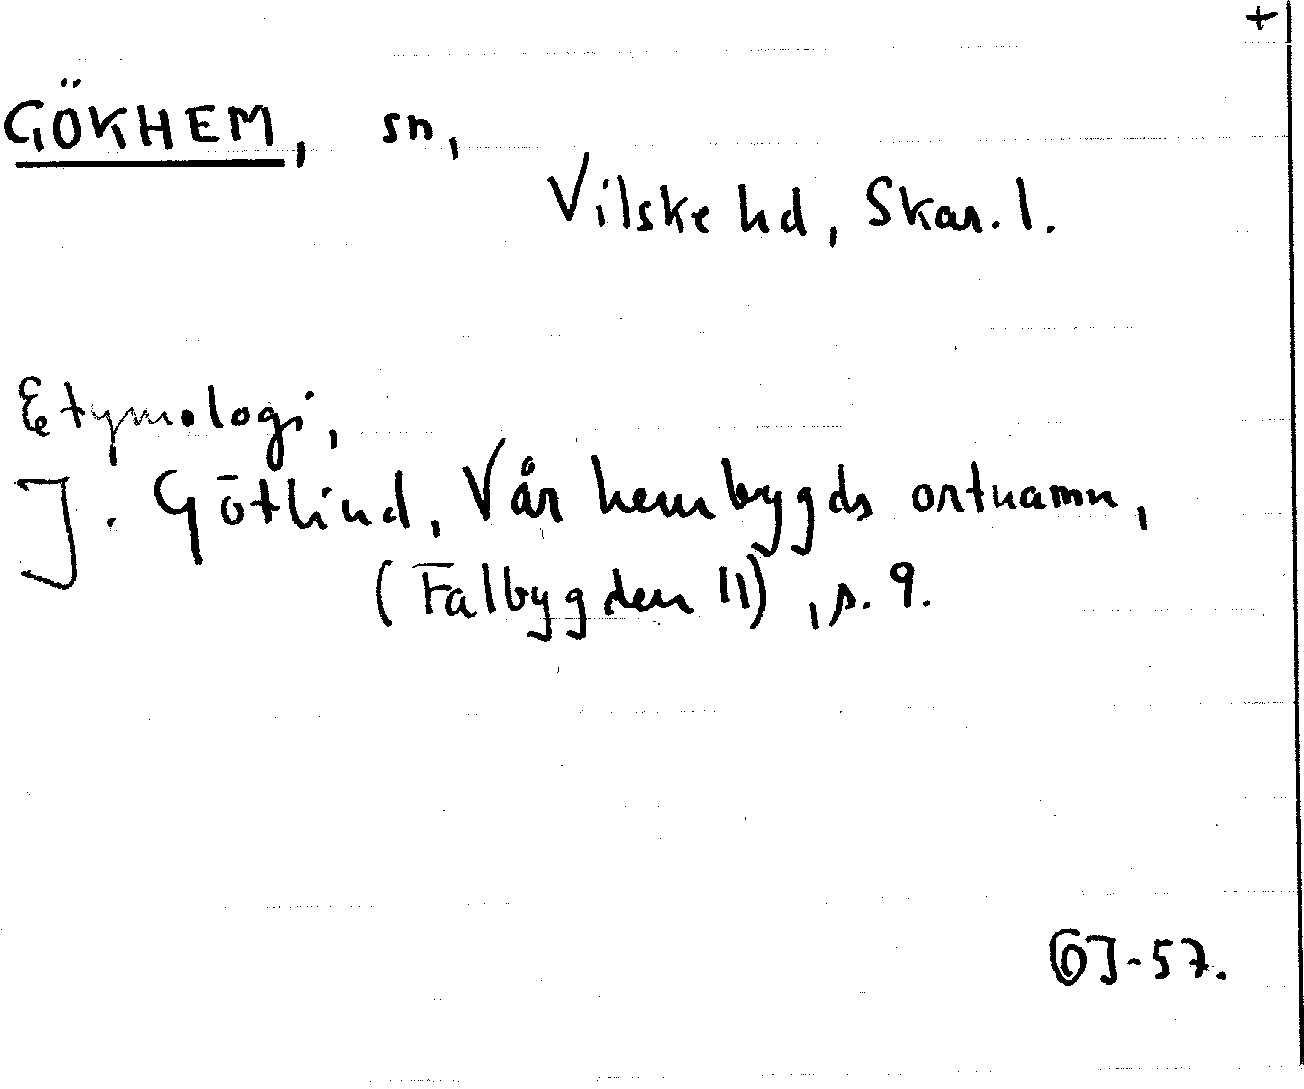 +
GÖKHEM, sn,
Vilske hd, Skar. l.
Etymologi,
J. Götlind, Vår hembygds ortnamn,
(Falbygden 11), s. 9.
OJ-57.